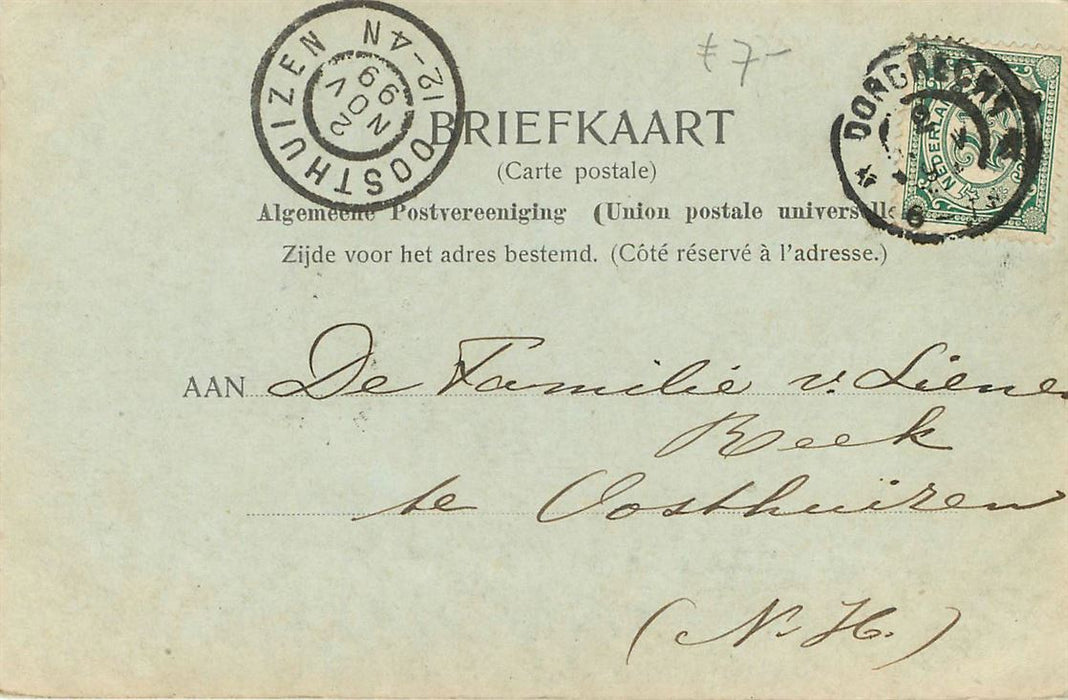 OOSTHUIZEN
12-4N
2 NOV 99
ƒ 7-
DORDRECHT
NEDERLAND
BRIEFKAART
(Carte postale)
Algemeene Postvereeniging (Union postale universelle
Zijde voor het adres bestemd. (Côté réservé à l'adresse.)
AAN De Familie v. Liene
Beek
te Oosthuizen
(N. H.)